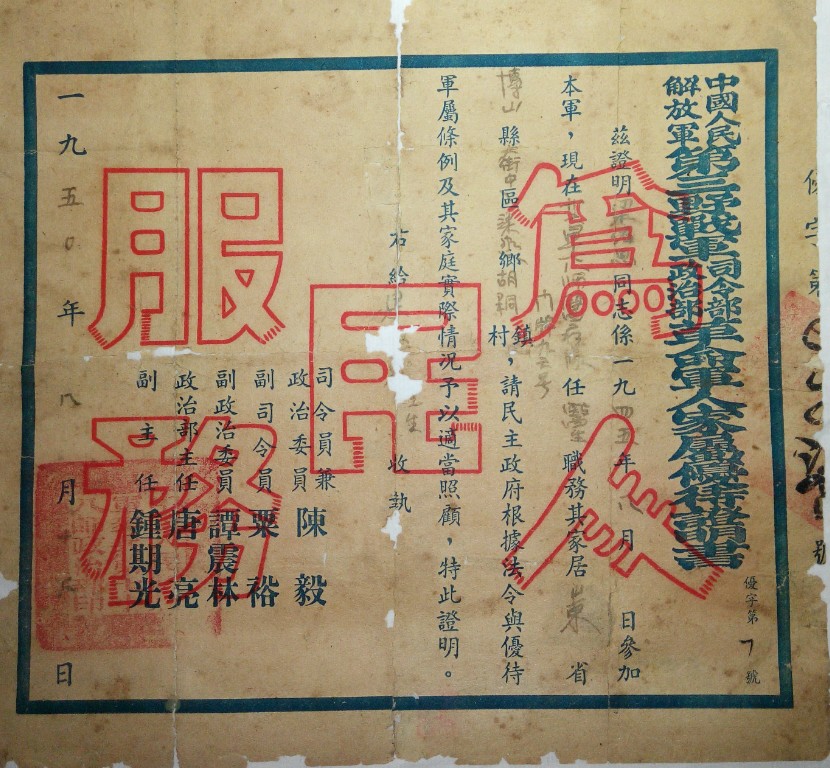 中國人民
解放軍
第三野戰軍
司令部
政治部
革命軍人家屬優待證明書
優字第 7 號
茲證明 同志係一九四五年八月 日參加
本軍，現在 任醫生職務其家居山東省
博山縣街中區 鄉胡同
鎮
村，請民主政府根據法令與優待
軍屬條例及其家庭實際情況予以適當照顧，特此證明。
右給 收執
司令員兼
政治委員 陳毅
副司令員 粟裕
副政治委員 譚震林
政治部主任 唐亮
副主任 鍾期光
一九五〇年八月 日
為人民服務
優字第
號